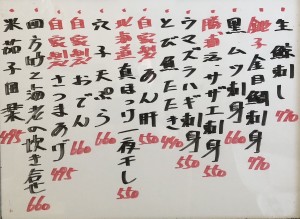 生鯨刺し 770
銚子金目鯛刺身 770
黒ムツ刺身 660
勝浦サザエ刺身 550
ウマズラハギ刺身 550
とび魚たたき 440
自家製あん肝 550
北海道真ほっけ一夜干し 550
穴子天ぷら 660
自家製おでん 660
自家製さつまあげ 495
四方竹と海老の炊き合せ 660
米茄子田楽 495